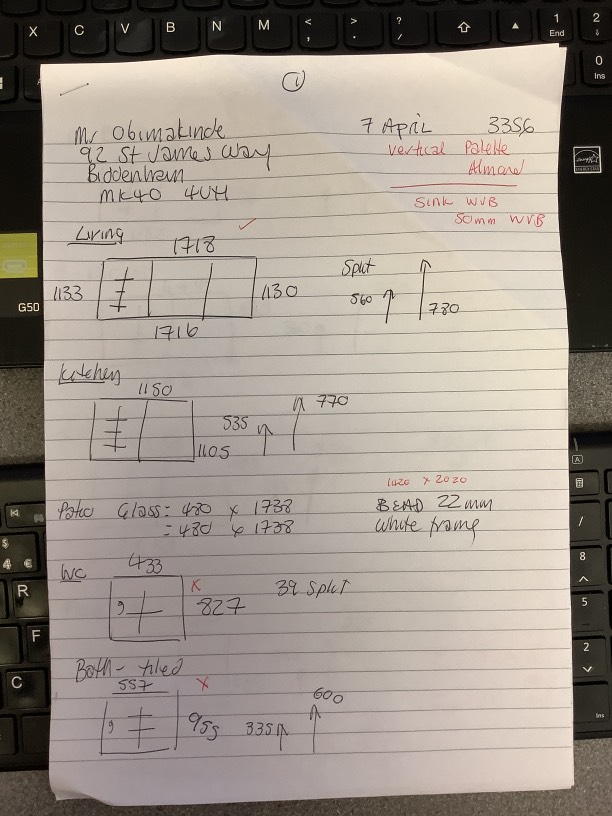 X C V B N M < , > . ? / 1 End 2
0 Ins
1
Mr Obimakinde
7 April 3356
92 St James Way
Vertical Palette
Biddenham
Almond
MK40 4UH
Sink WVB
50mm WVB
Living
1718
1133
1130
Split
560
780
1716
G50
Kitchen
1150
535
770
1105
1420 x 2020
Patio Glass = 480 x 1738 BEAD 22mm
= 480 x 1738 White frame
WC
433
x
827
39 Split
Bath - tiled
557
x
955
335
600
$ 4 €
R
F
C
A
/
8
5
2
Ins